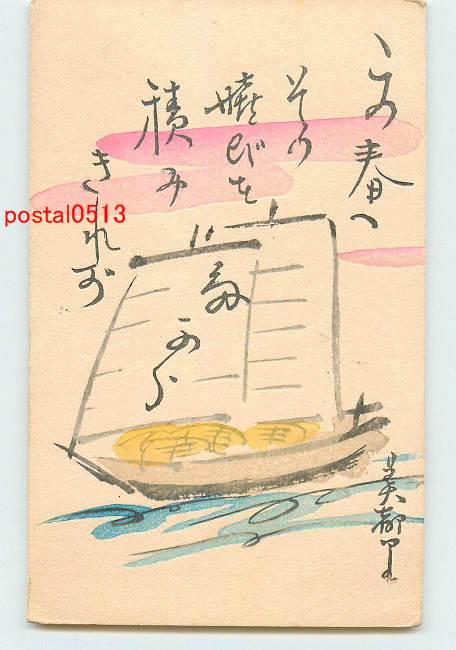 この春へ
その
慶びを
積み
きれず
美都里
postal0513